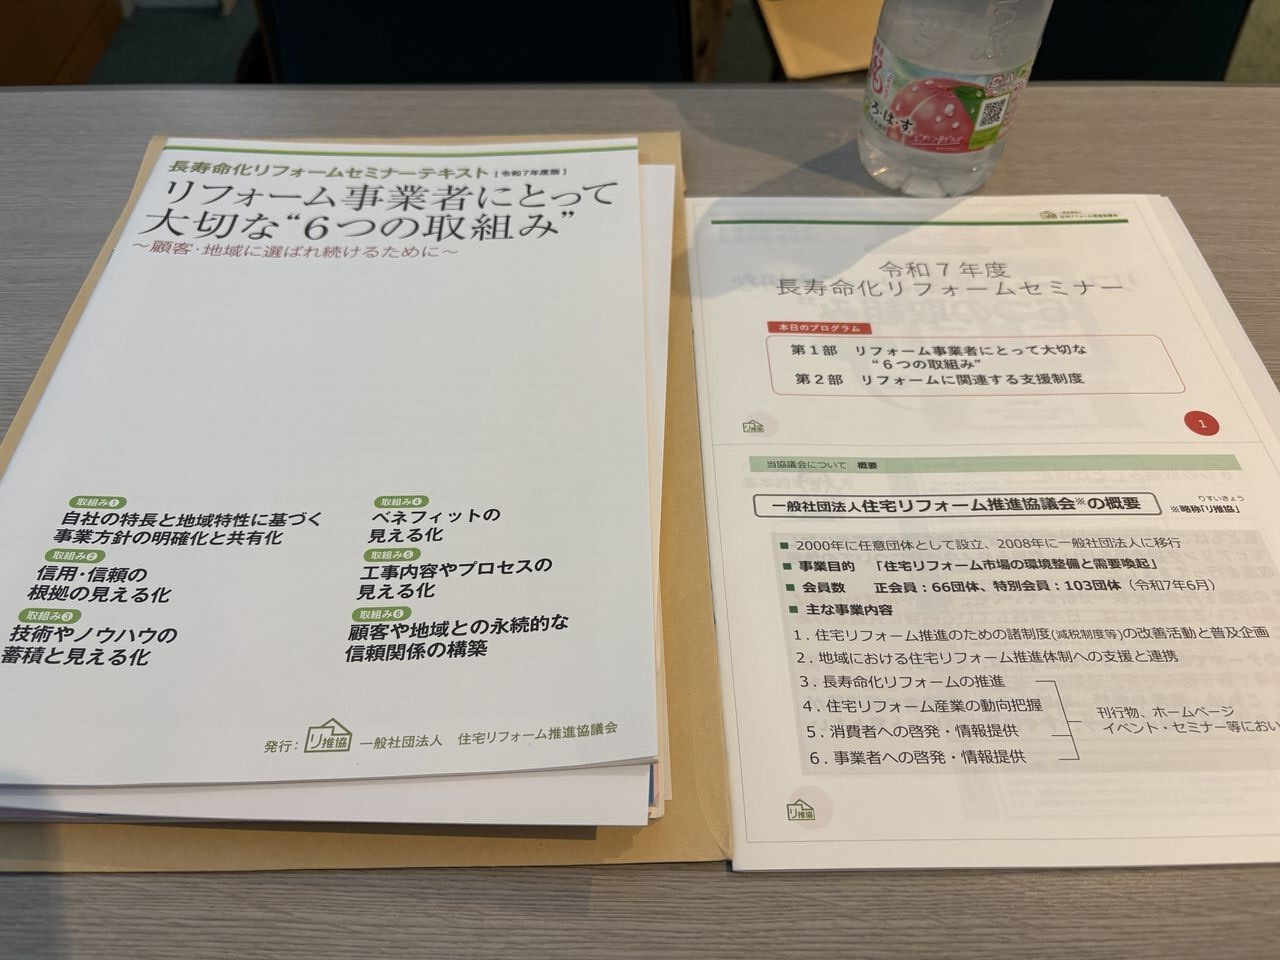 長寿命化リフォームセミナーテキスト［令和7年度版］
リフォーム事業者にとって
大切な“6つの取組み”
～顧客・地域に選ばれ続けるために～
取組み1
自社の特長と地域特性に基づく
事業方針の明確化と共有化
取組み2
信用・信頼の
根拠の見える化
取組み3
技術やノウハウの
蓄積と見える化
取組み4
ベネフィットの
見える化
取組み5
工事内容やプロセスの
見える化
取組み6
顧客や地域との永続的な
信頼関係の構築
発行：リ推協 一般社団法人 住宅リフォーム推進協議会
い・ろ・は・す
一般社団法人
住宅リフォーム推進協議会
令和７年度
長寿命化リフォームセミナー
本日のプログラム
第１部 リフォーム事業者にとって大切な
“６つの取組み”
第２部 リフォームに関連する支援制度
リ推協
1
当協議会について 概要
一般社団法人住宅リフォーム推進協議会※の概要
りすいきょう
※略称「リ推協」
■ 2000年に任意団体として設立、2008年に一般社団法人に移行
■ 事業目的 「住宅リフォーム市場の環境整備と需要喚起」
■ 会員数 正会員：66団体、特別会員：103団体（令和7年6月）
■ 主な事業内容
１．住宅リフォーム推進のための諸制度(減税制度等)の改善活動と普及企画
２．地域における住宅リフォーム推進体制への支援と連携
３．長寿命化リフォームの推進
４．住宅リフォーム産業の動向把握
５．消費者への啓発・情報提供
６．事業者への啓発・情報提供
刊行物、ホームページ
イベント・セミナー等におい
リ推協